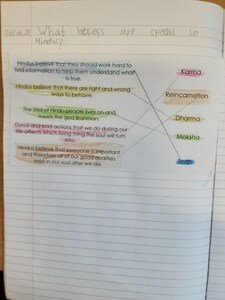 What beliefs are special to
Hindus?
Hindus believe that they should work hard to
find information to help them understand what
is true.
Karma
Hindus believe that there are right and wrong
ways to behave.
Reincarnation
The soul of Hindu people lives on and
meets the god Brahman.
Dharma
Good and bad actions that we do during our
life affects which living thing the soul will turn
into.
Moksha
Hindus believe that everyone is important
and therefore all of our good qualities
exist in our soul after we die.